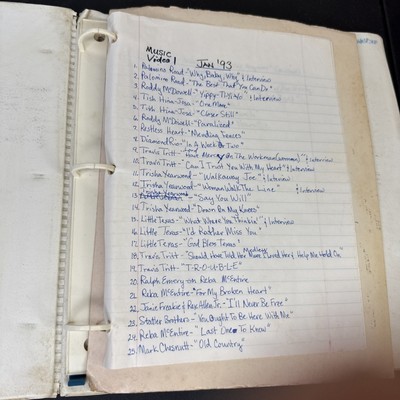 MUSIC
Video 1 JAN '93
1. Palomino Road - "Why, Baby, Why" & Interview
2. Palomino Road - "The Best That You Can Do"
3. Roddy McDowell - "Yippy- & Interview
4. Tish Hinojosa - "One May
5. Tish Hinojosa - "Closer Still"
6. Roddy McDowell - "Paralized"
7. Restless Heart - "Mending Fences"
8. Diamond Rio - "In A Week Or Two"
9. Travis Tritt - "Have Mercy On The Workman & Interview
10. Travis Tritt - "Can I Trust You With My Heart" & Interview
11. Trisha Yearwood - "Walkaway Joe" & Interview
12. Trisha Yearwood - "Woman Walk The Line" & Interview
13. - "Say You Will"
14. Trisha Yearwood - "Down On My Knees"
15. Little Texas - "What Were You Thinkin'" & Interview
16. Little Texas - "I'd Rather Miss You"
17. Little Texas - "God Bless Texas"
18. Travis Tritt - "Should Have Told Her More I Loved Her & Help Me Hold On" Medley
19. Travis Tritt - "T-R-O-U-B-L-E"
20. Ralph Emery with Reba McEntire
21. Reba McEntire - "For My Broken Heart"
22. Janie Frickie & Rex Allen Jr. - "I'll Never Be Free"
23. Statler Brothers - "You Ought To Be Here With Me"
24. Reba McEntire - "Last One To Know"
25. Mark Chesnutt - "Old Country"